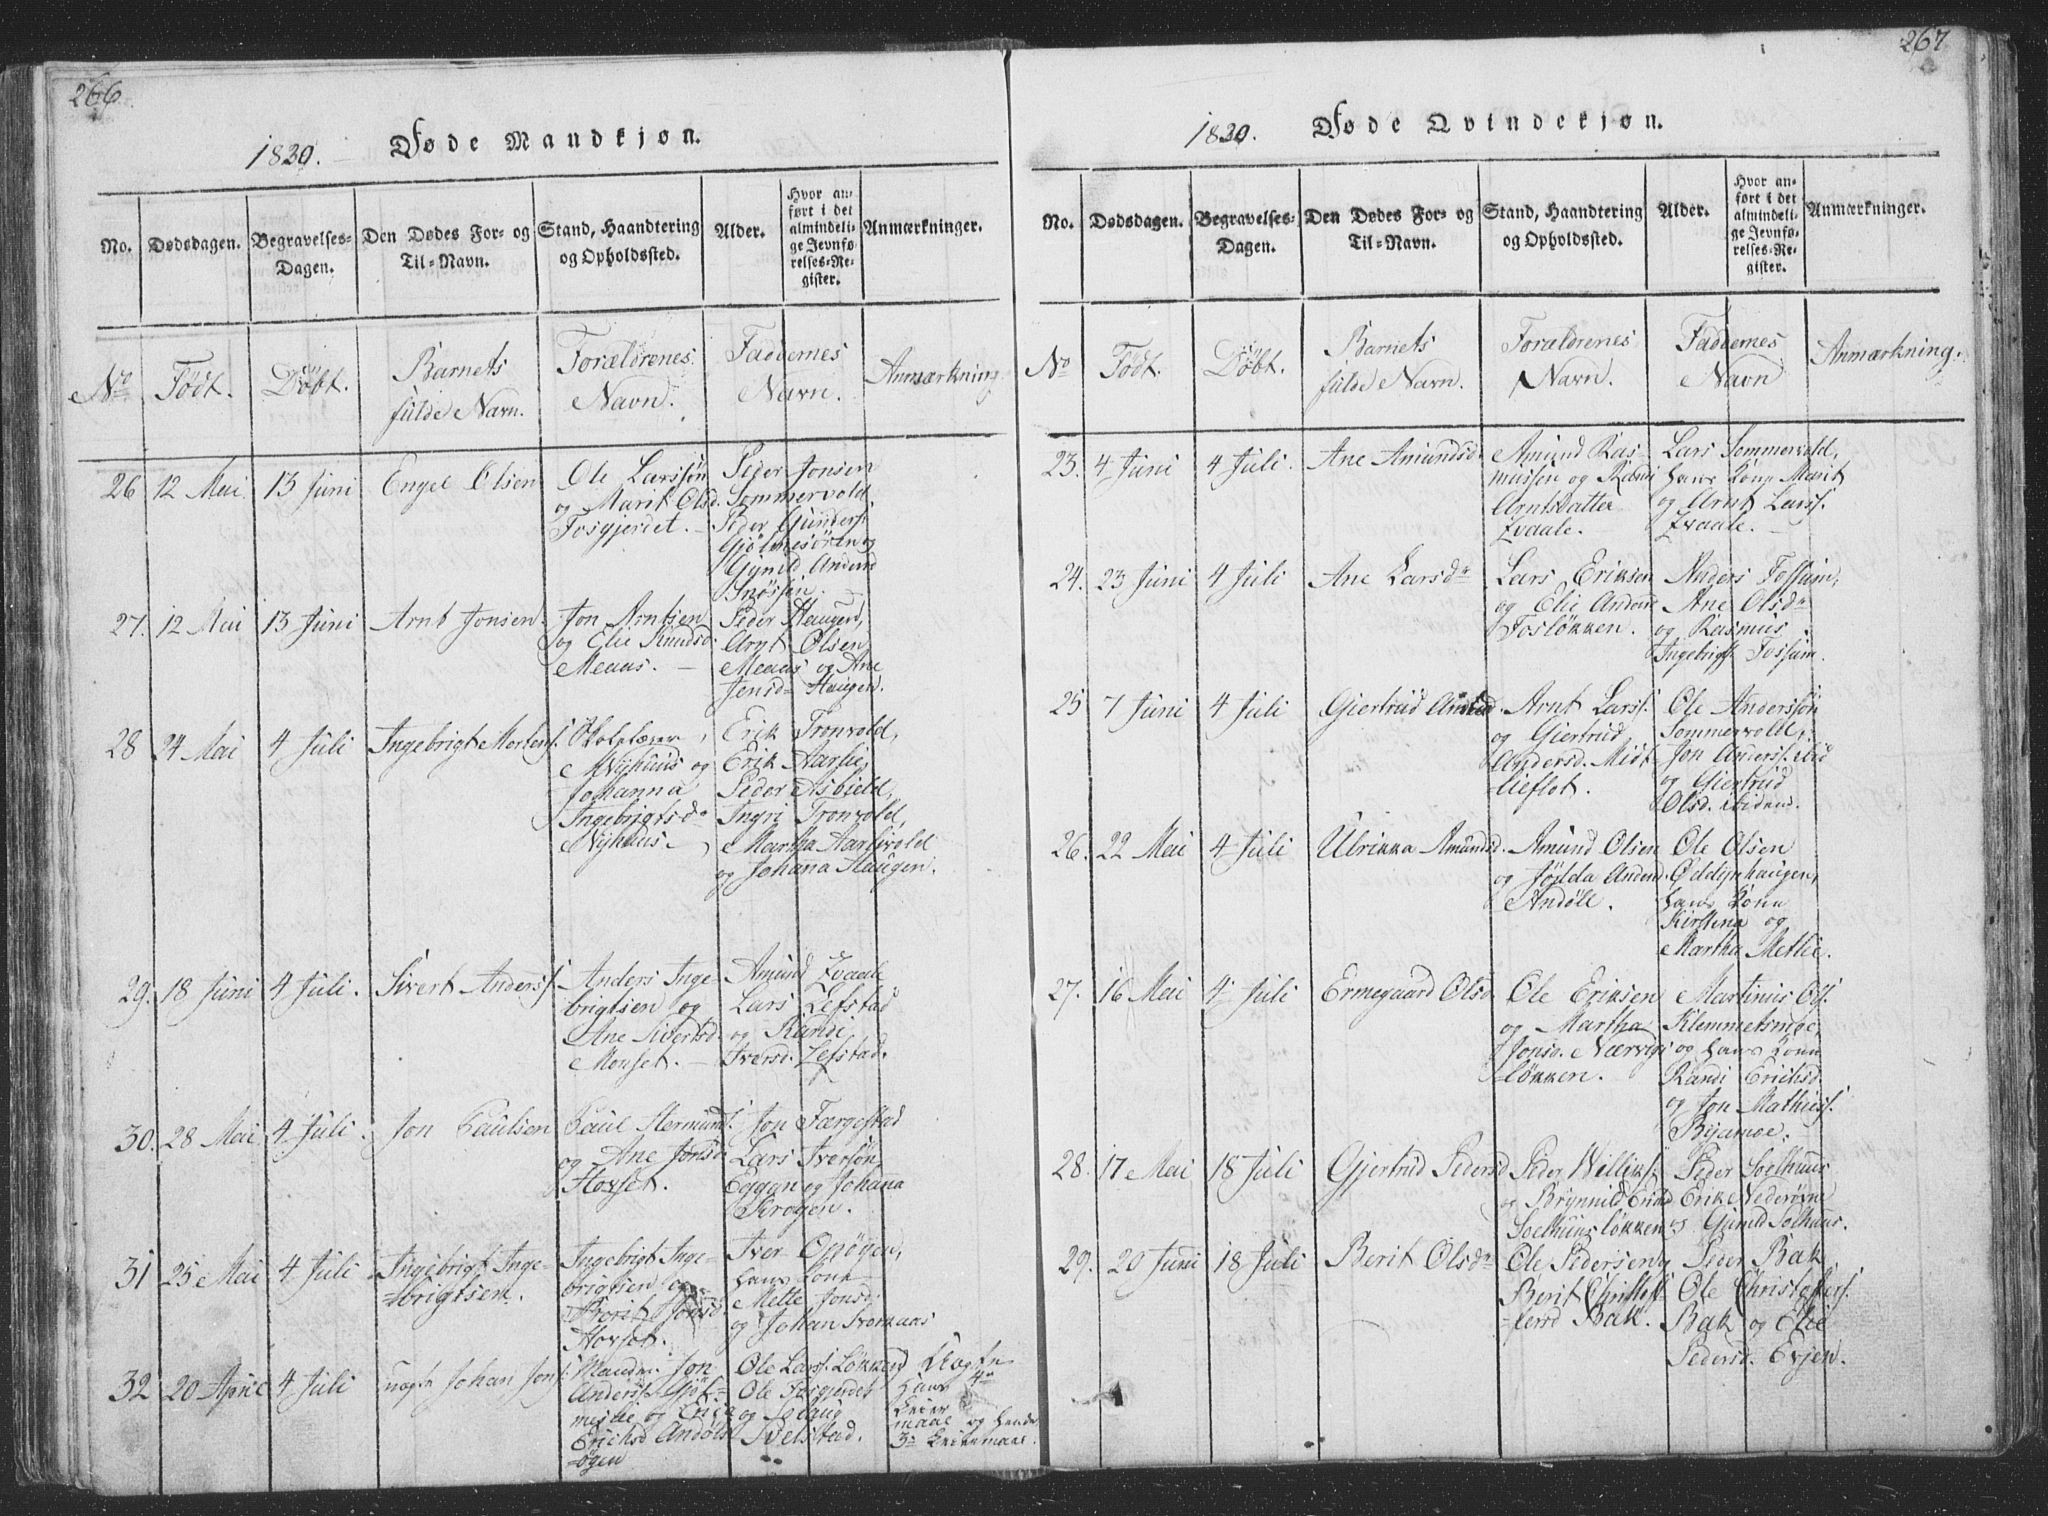 266
1820. Føde Mandkjøn.
No. Dødsdagen. Begravelses-Dagen. Den Dødes For- og Til-Navn. Stand, Haandtering og Opholdssted. Alder. Hvor anført i det almindelige Jevnførelses-Register. Anmærkninger.
No Født. Døbt. Barnets fulde Navn. Forældrenes Navn. Faddernes Navn. Anmærkning
26 12 Mai 13 Juni Engel Olsen
Ole Larssøn
og Marit Olsd.
Fosgjerdet.
Peder Jonsen
Sommervold,
Peder Gunders.
og
Anders
27. 12 Mai 13 Juni Arnt Jonsen
Jon Arntsen
og Elie Knudsd.
Meaas.
Peder Haugen,
Arnt Olsen
Meaas og Ane
Jensd. Haugen.
28 24 Mai 4 Juli Ingebrigt Mortens.
Nyhuus og
Johanna
Ingebrigtsdr
Nyhuus.
Erik Tronvold,
Erik Aarlie,
Peder Asbield,
Ingri Tronvold,
Martha Aarlivold
og Johana Haugen.
29. 18 Juni 4 Juli. Sivert Anderss.
Anders Inge-
brigtsen og
Ane Sivertsd.
Monset.
Amund Evaale
Lars Lefstad
og Randi
Iversd. Lefstad.
30. 28 Mai 4 Juli. Jon Paulsen
Paul Hermunds.
og Ane Jonsd.
Hovset.
Jon Færgestad
Lars Iversøn
Eggen og Johana
Krogen.
31 25 Mai 4 Juli Ingebrigt Inge-
brigtsen.
Ingebrigt Inge-
brigtsen og
Berit Jonsd.
Hovset.
Iver Opøgen,
hans Kone
Mette Jonsd.
og Johan Tromaas
32 20 April 4 Juli uægte Johan Jons.
Jon
Anderss. Gjøl-
meslie og
Erichsd Andøls-
øgen
Ole Larss. Løkken
Ole Fosgjerdet
og Solaug
Svelstad.
hans 4de
Leier
maal og hendes
3die Leiermaal.
267
1820. Føde Qvindekjøn.
No. Dødsdagen. Begravelses-Dagen. Den Dødes For- og Til-Navn. Stand, Haandtering og Opholdssted. Alder. Hvor anført i det almindelige Jevnførelses-Register. Anmærkninger.
No Født. Døbt. Barnets fulde Navn. Forældrenes Navn. Faddernes Navn Anmærkning.
23. 4 Juni 4 Juli. Ane Amundsd.
Amund Ras-
mussen og Randi
Arntsdatter
Evaale.
Lars Sommervold,
hans Kone Marit
og Arnt Larss.
Evaale.
24. 23 Juni 4 Juli Ane Larsdr
Lars Eriksen
og Elie Anders
Fosløkken.
Anders Fossum,
Ane Olsdr
og Rasmus
Ingebrigts. Fossum.
25 7 Juni 4 Juli Giertrud Arntsd.
Arnt Larss.
og Giertrud
Andersd. Midt-
lieflot.
Ole Anderssøn
Sommervold,
Jon Anderss. Lid
og Giertrud
Olsd.
26. 22 Mai 4 Juli Ulrikka Amundsd.
Amund Olsen
og Andersd.
Andøll.
Ole Olsen
Oddlynhaugen,
hans Kone
Kirstina og
Martha Metlie.
27. 16 Mai 4 Juli Ermegaard Olsd
Ole Eriksen
og Martha
Jonsd. Nærvigs-
løkken.
Martinus Ols.
Klemmetsmoe,
og hans Kone
Randi Erichsd.
og Jon Mathiass.
Byamoe.
28. 17 Mai 18 Juli Gjertrud Pedersd
Peder Williks.
og Brynnild Eriksd
Soelhuusløkken
Peder Soelhuus
Erik Nederøvne
og Gunild Solhuus.
29. 20 Juni 18 Juli Berit Olsdr
Ole Pedersen og
Berit Christof-
fersd Bak.
Peder Bak
Ole Christoffers.
Bak og Elie
Pedersd. Evjen.